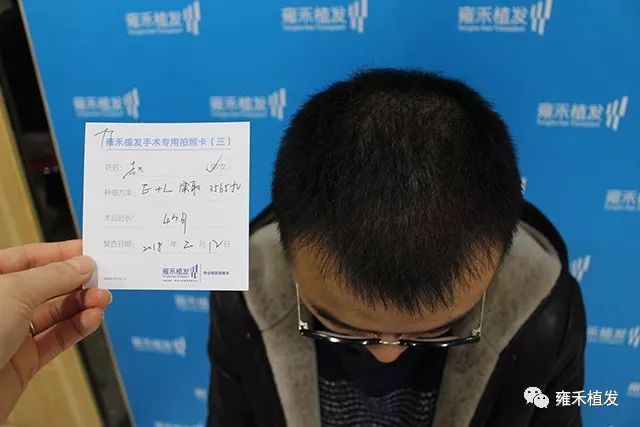 雍禾植发
雍禾植发
雍禾植发
雍禾植发
雍禾植发
雍禾植发手术专用拍照卡（三）
姓名： 赵 （男/女）
种植方案： E+L 3565
术后时长： 4个月
复查日期： 2018 年 2 月 12 日
雍禾植发
专业植发技术
雍禾植发
雍禾植发
雍禾植发
雍禾植发